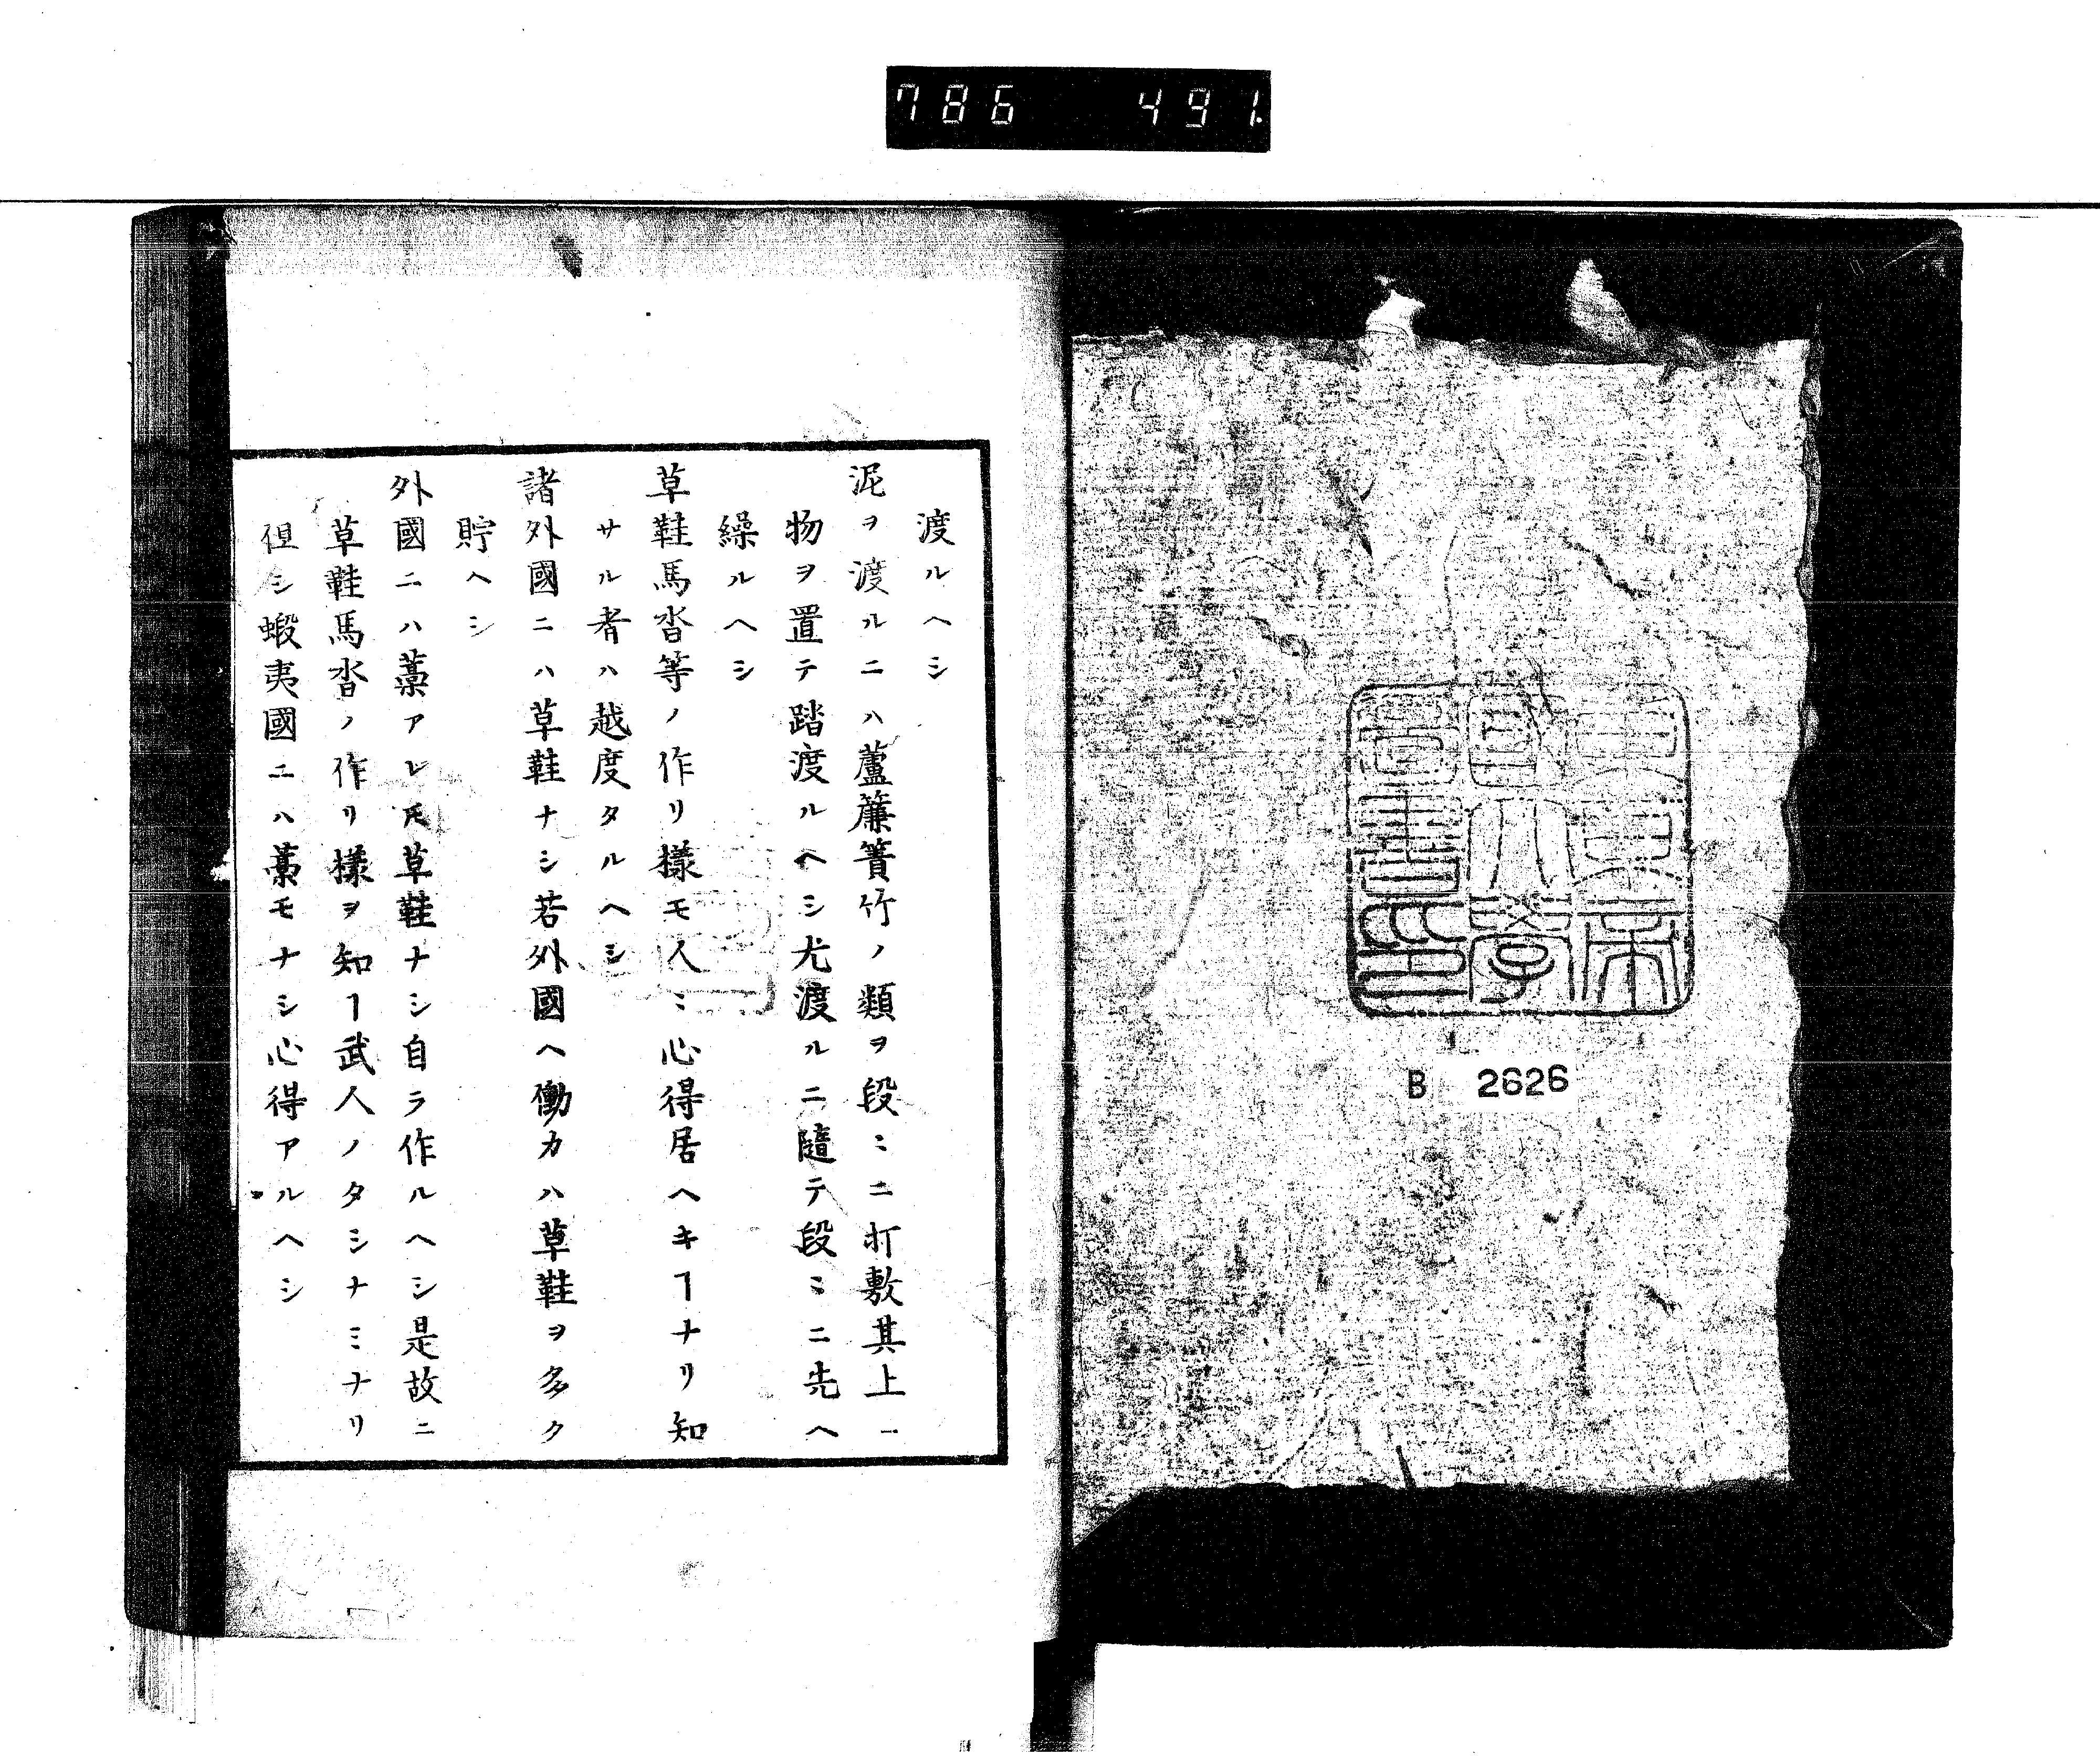 786 491.
東京帝
國大學
圖書印
B 2626
渡ルヘシ
泥ヲ渡ルニハ蘆簾簀竹ノ類ヲ段〻ニ打敷其上ニ
物ヲ置テ踏渡ルヘシ尤渡ルニ隨テ段〻ニ先ヘ
繰ルヘシ
草鞋馬沓等ノ作リ樣モ人〻心得居ヘキヿナリ知
サル者ハ越度タルヘシ
諸外國ニハ草鞋ナシ若外國ヘ働カハ草鞋ヲ多ク
貯ヘシ
外國ニハ藁アレ𪜈草鞋ナシ自ラ作ルヘシ是故ニ
草鞋馬沓ノ作リ樣ヲ知ヿ武人ノタシナミナリ
但シ蝦夷國ニハ藁モナシ心得アルヘシ